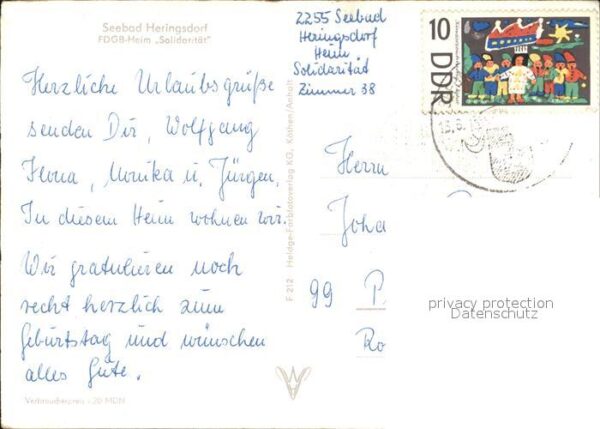 Seebad Heringsdorf
FDGB-Heim „Solidarität"
2255 Seebad
Heringsdorf
Heim
Solidarität
Zimmer 38
10
DDR
Herzliche Urlaubsgrüße
senden Dir, Wolfgang
Ilona, Monika u. Jürgen.
In diesem Heim wohnen wir.
Wir gratulieren noch
recht herzlich zum
Geburtstag und wünschen
alles Gute.
Verbraucherpreis -,20 MDN
F 212 Heldge-Farbfotoverlag KG, Köthen/Anhalt
Herrn
Joha
99 P
Ro
privacy protection
Datenschutz